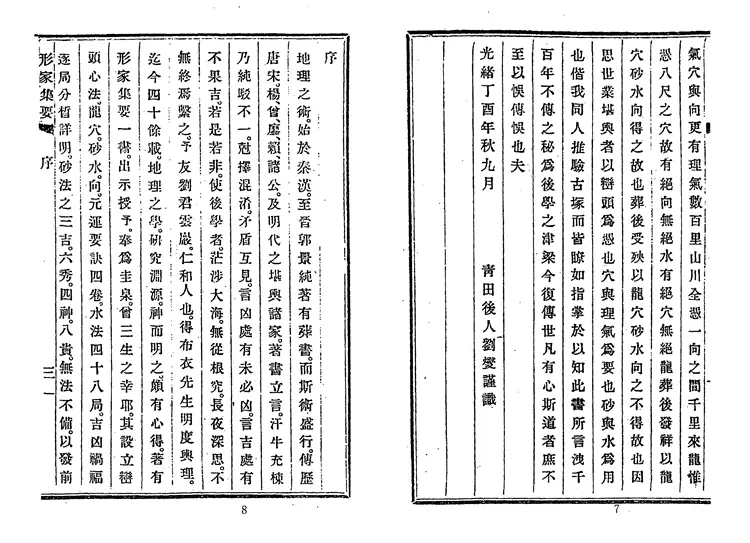 氣穴與向更有理氣數百里山川全憑一向之間千里來龍惟
憑八尺之穴故有絕向無絕水有絕穴無絕龍葬後發祥以龍
穴砂水向得之故也葬後受殃以龍穴砂水向之不得故也因
思世業堪輿者以巒頭爲憑也穴與理氣爲要也砂與水爲用
也偕我同人推驗古塚而皆瞭如指掌於以知此書所言洩千
百年不傳之秘爲後學之津梁今復傳世凡有心斯道者庶不
至以悞傳悞也夫
光緒丁酉年秋九月 靑田後人劉燮謹識
7
序
地理之術。始於秦漢。至晉郭景純著有葬書。而斯術盛行。傳歷
唐宋。楊、曾、廖、賴諸公。及明代之堪輿諸家。著書立言。汗牛充棟
乃純駁不一。尅擇混淆。矛盾互見。言凶處有未必凶。言吉處有
不果吉。若是若非。使後學者。茫涉大海。無從根究。長夜深思。不
無終焉繫之。予友劉君雲巖。仁和人也。得布衣先生明度輿理。
迄今四十餘載。地理之學。硏究淵源。神而明之。頗有心得。著有
形家集要一書。出示授予。奉爲圭臬。曾三生之幸耶。其設立巒
頭心法。龍穴。砂水。向。元運要訣四卷。水法四十八局。吉凶禍福
逐局分晳詳明。砂法之三吉。六秀。四神。八貴。無法不備。以發前
形家集要 序 三一
8